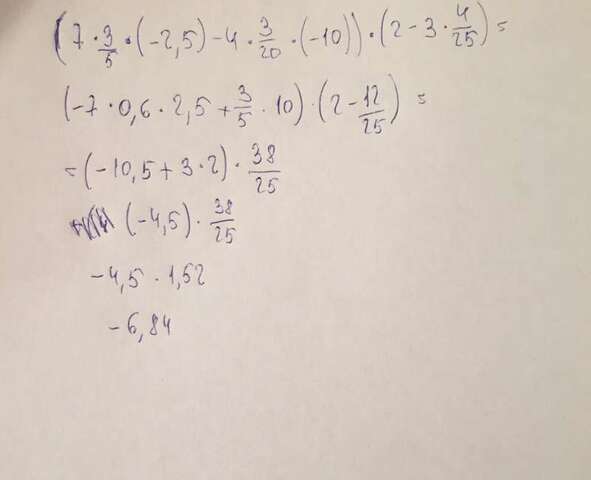 (7 · 3/5 · (-2,5) - 4 · 3/20 · (-10)) · (2 - 3 · 4/25) =
(-7 · 0,6 · 2,5 + 3/5 · 10) · (2 - 12/25) =
= (-10,5 + 3 · 2) · 38/25
(-4,5) · 38/25
-4,5 · 1,52
-6,84